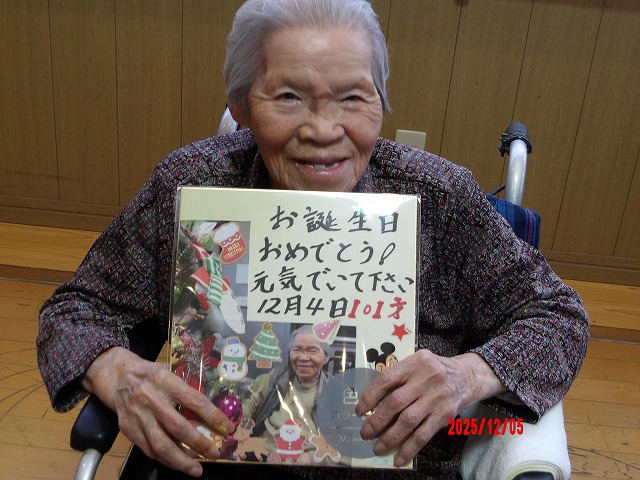 お誕生日
おめでとう!
元気でいて下さい
12月4日101才
2025/12/05